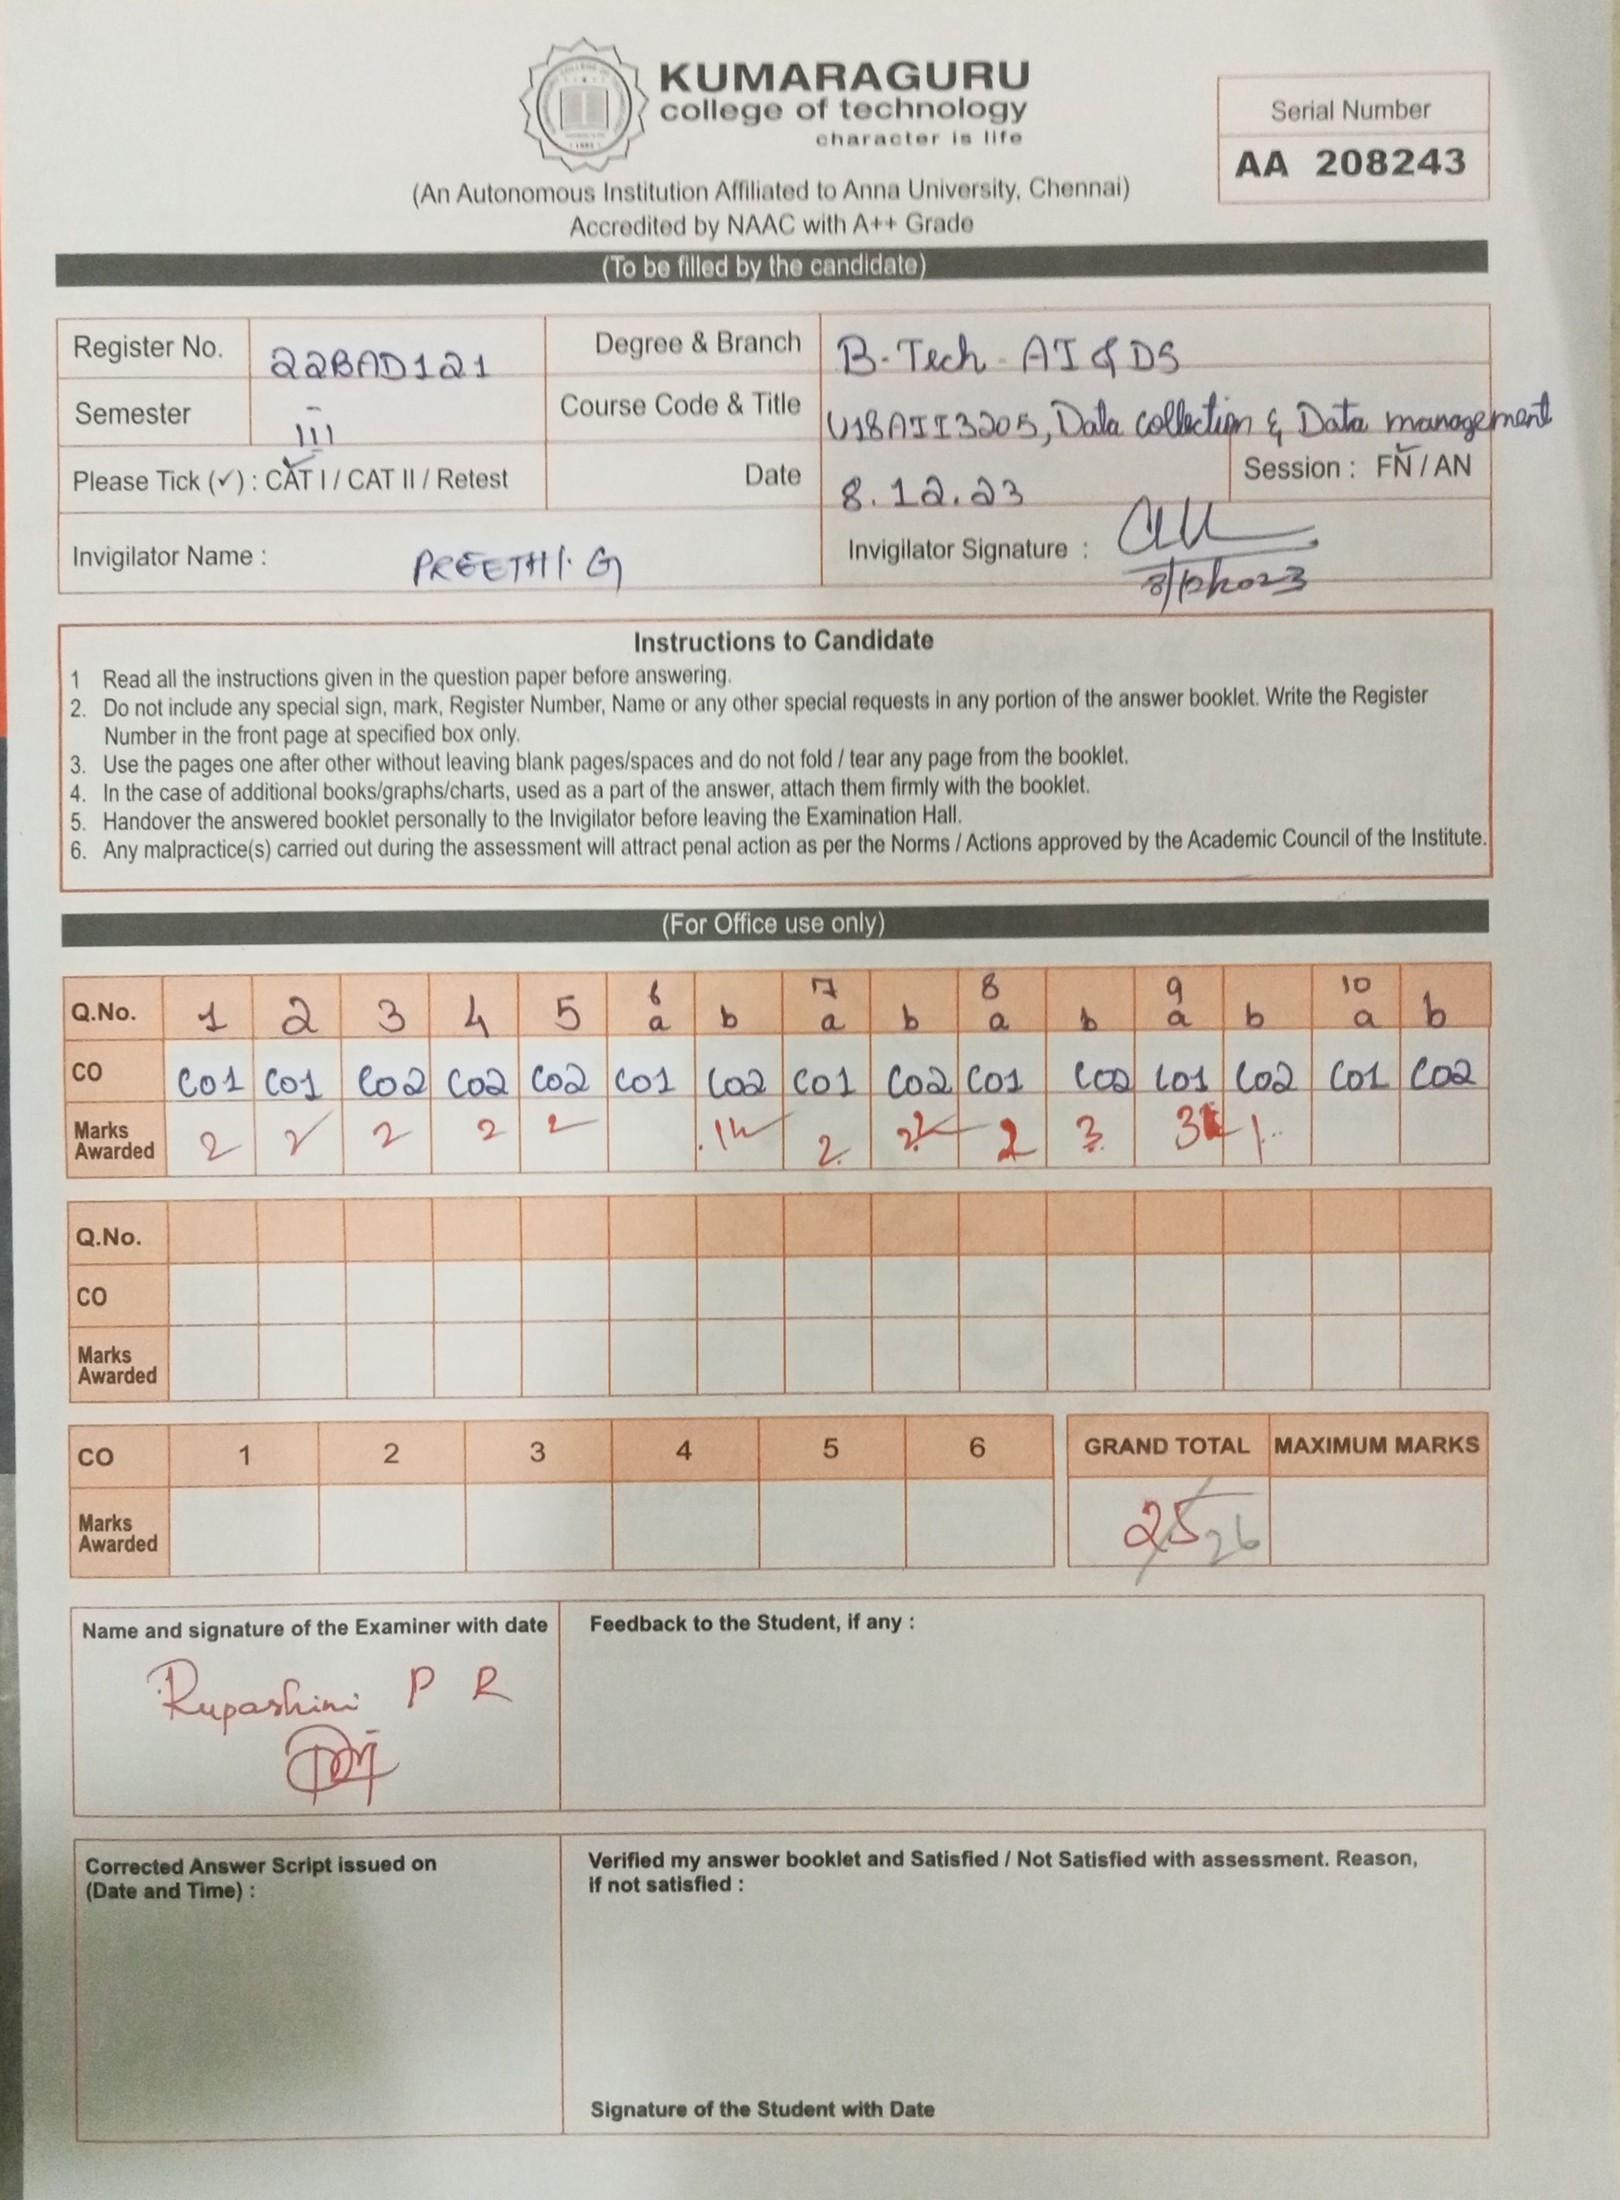 KUMARAGURU
college of technology
character is life
(An Autonomous Institution Affiliated to Anna University, Chennai)
Accredited by NAAC with A++ Grade
Serial Number
AA 208243
(To be filled by the candidate)
Register No. 22BAD121 Degree & Branch B.Tech - AI & DS
Semester III Course Code & Title U18AII3205, Data collection & Data management
Please Tick (✓) : CAT I / CAT II / Retest Date 8.12.23 Session : FN / AN
Invigilator Name : PREETHI. G Invigilator Signature :
Instructions to Candidate
1 Read all the instructions given in the question paper before answering.
2. Do not include any special sign, mark, Register Number, Name or any other special requests in any portion of the answer booklet. Write the Register
Number in the front page at specified box only.
3. Use the pages one after other without leaving blank pages/spaces and do not fold / tear any page from the booklet.
4. In the case of additional books/graphs/charts, used as a part of the answer, attach them firmly with the booklet.
5. Handover the answered booklet personally to the Invigilator before leaving the Examination Hall.
6. Any malpractice(s) carried out during the assessment will attract penal action as per the Norms / Actions approved by the Academic Council of the Institute.
(For Office use only)
Q.No. 1 2 3 4 5 6 a b 7 a b 8 a b 9 a b 10 a b
CO CO1 CO1 CO2 CO2 CO2 CO1 CO2 CO1 CO2 CO1 CO2 CO1 CO2 CO1 CO2
Marks
Awarded 2 2 2 2 2 2 2 3 3 1
Q.No.
CO
Marks
Awarded
CO 1 2 3 4 5 6
Marks
Awarded
GRAND TOTAL MAXIMUM MARKS
25 26
Name and signature of the Examiner with date
Rupashini P R
Feedback to the Student, if any :
Corrected Answer Script issued on
(Date and Time) :
Verified my answer booklet and Satisfied / Not Satisfied with assessment. Reason,
if not satisfied :
Signature of the Student with Date